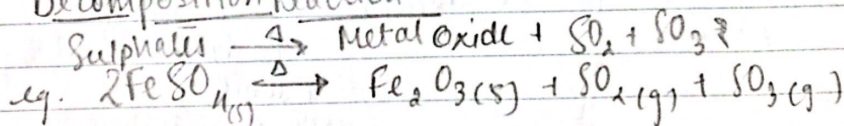 Decomposition Reaction
Sulphates —Δ→ Metal Oxide + SO₂ + SO₃ ?
eg. 2FeSO₄(s) —Δ→ Fe₂O₃(s) + SO₂(g) + SO₃(g)